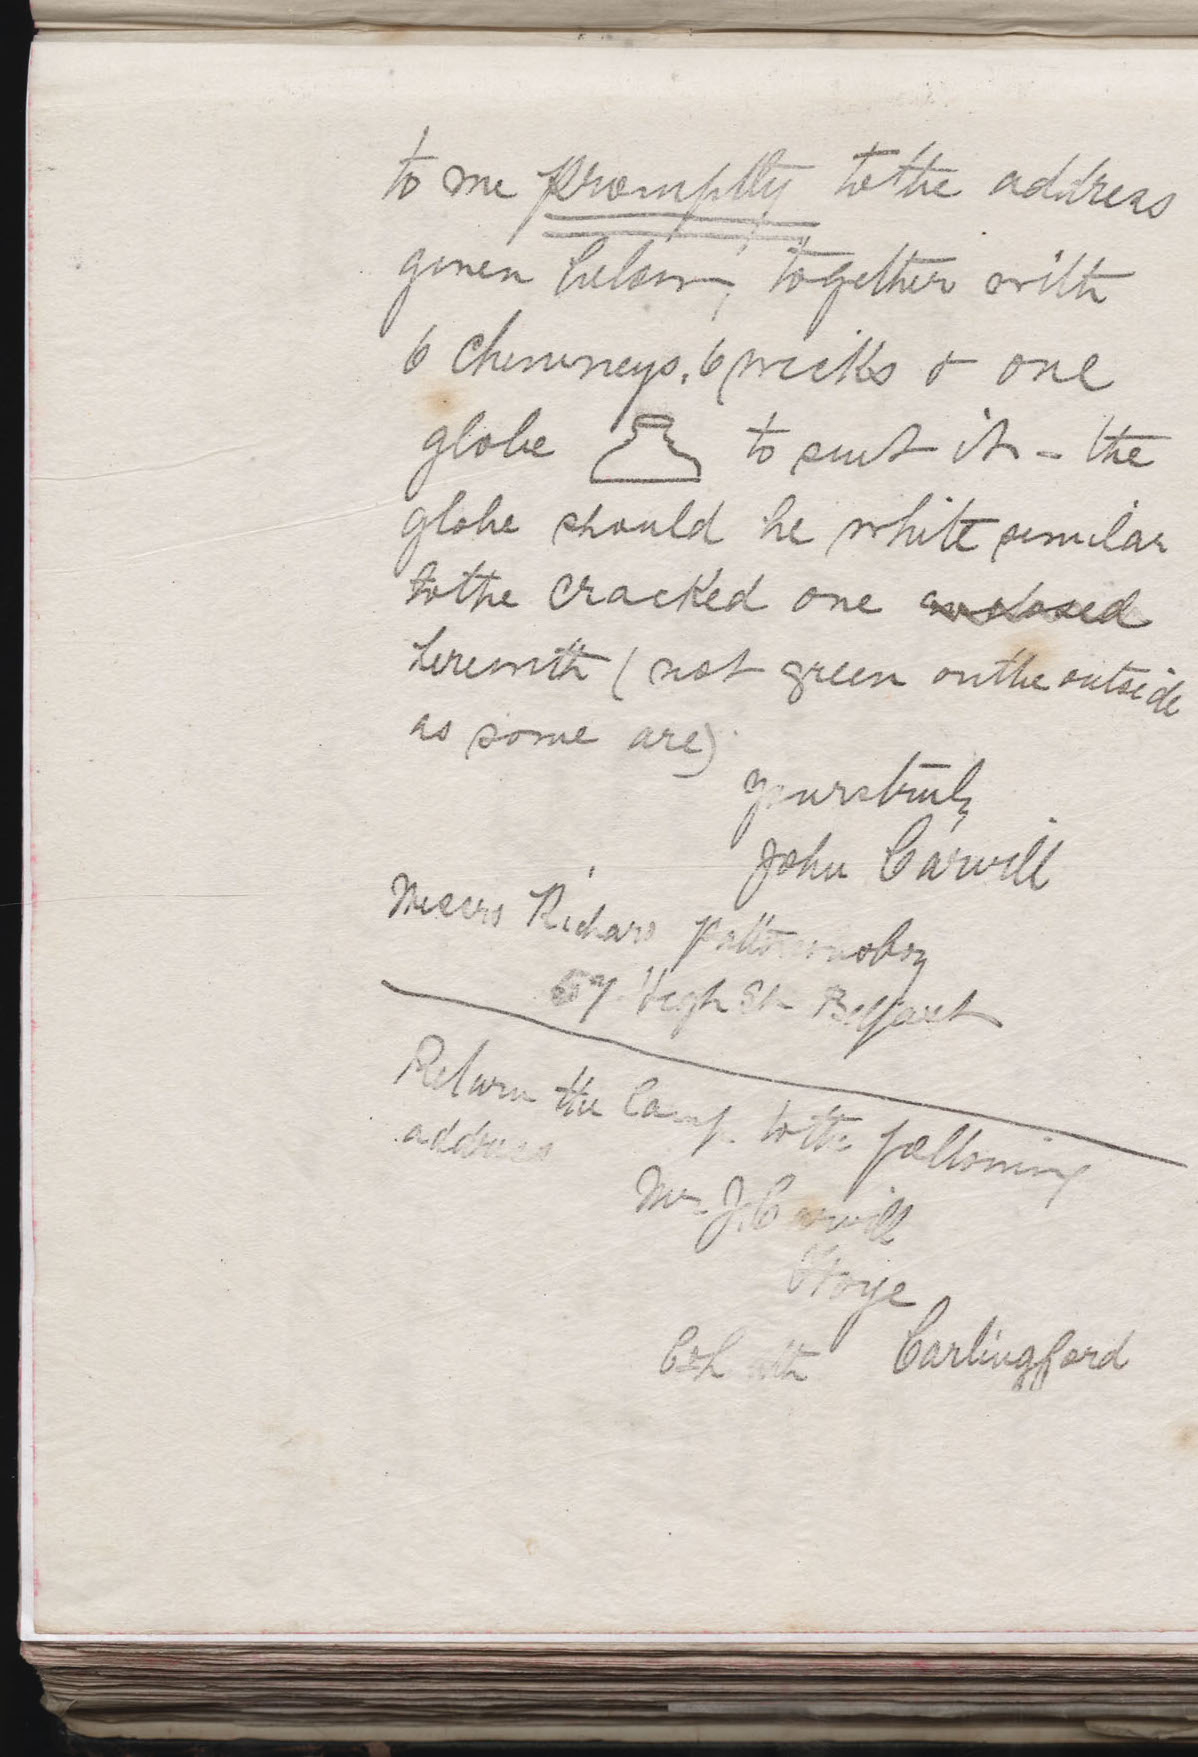 to me promptly to the address
given below, together with
6 chimneys, 6 wicks & one
globe to suit it - the
globe should be white similar
to the cracked one enclosed
herewith (not green on the outside
as some are)
Yours truly
John Carvill
Messrs Richard Patterson & Coy
57 High St Belfast
Return the lamp to the following
address
Mr J. Carvill
Carlingford